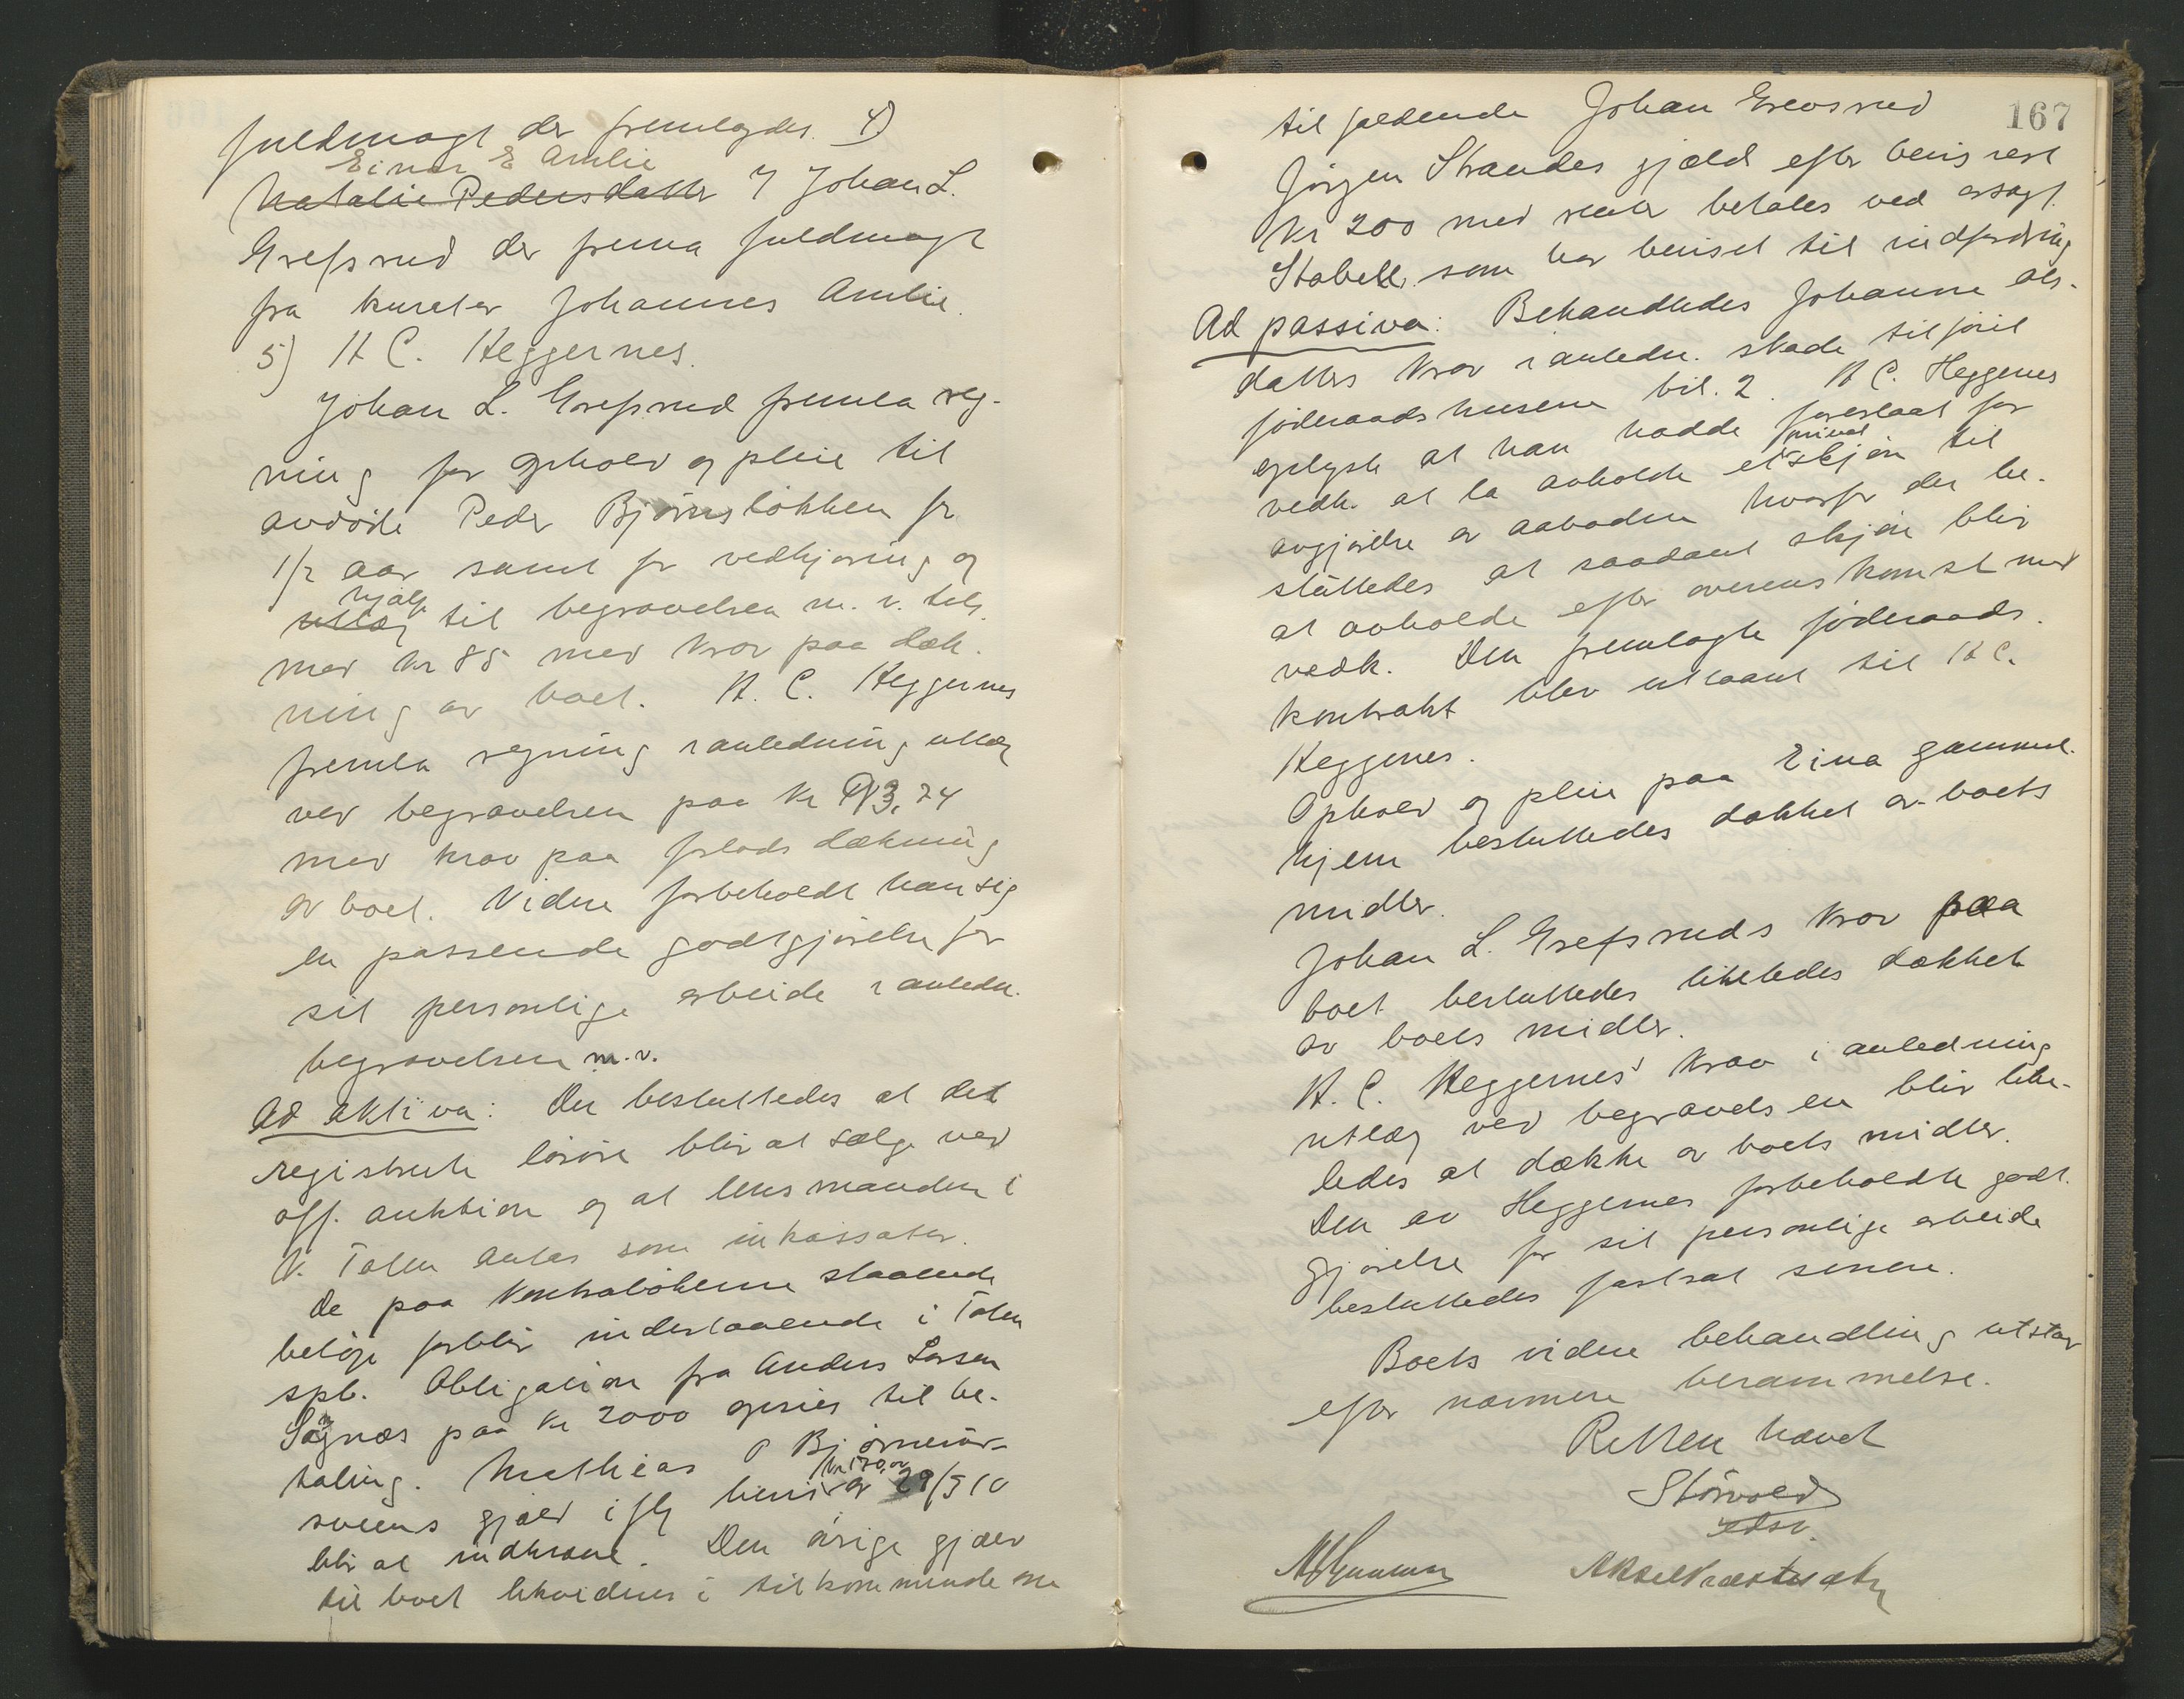 fuldmagt der fremlagdes. 4)
Einar E Amlie
Natalie Pedersdatter v/ Johan L.
Grefsrud der fremla fuldmagt
fra kurator Johannes Amlie.
5) H C. Heggernes.
Johan L. Grefsrud fremla reg-
ning for ophold og pleie til
avdøde Peder Bjørnsløkken for
1/2 aar samt for vedkjøring og
hjælp
utlæg til begravelsen m. v. tils.
med kr 85 med krav paa dæk-
ning av boet. H. C. Heggernes
fremla regning i anledning utlæg
ved begravelsen paa kr 93,74
med krav paa forlods dækning
av boet. Videre forbeholdt han sig
en passende godtgjørelse for
sit personlige arbeide i anledn.
begravelsen m. v.
Ad aktiva: Der besluttedes at det
registrerte løsøre blir at sælge ved
off. auktion og at lensmanden i
V. Toten antas som inkassator.
De paa kontrabøkerne staaende
beløp forblir indestaaende i Toten
spb. Obligation fra Anders Larsen
Sognæs paa kr 2000 opsies til be-
taling. Mathias P Bjørnerud-
kr 170,00
sveens gjæld ifølg bevis av 29/5 10
blir at indkræve. Den øvrige gjæld
til boet likvideres i tilkommende om
167
til faldende Johan Grevsrud
Jørgen Strandes gjæld efter bevis rest
kr 200 med renter betales ved orsagf.
Stabell. som har beviset til indfordring
Ad passiva: Behandledes Johanne Ols-
datters krav i anledn. skade tilføiet
føderaadshusene bil. 2. H C. Heggenes
oplyste at han hadde foreslaat for
privat
vedk. at la avholde et skjøn til
avgjørelse av aaboden hvorfor der be-
sluttedes at saadant skjøn blir
at avholde efter overenskomst med
vedk. Den fremlagte føderaads-
kontrakt blev utlaant til H C.
Heggenes.
Ophold og pleie paa Eina gammel-
hjem besluttedes dækket av boets
midler.
Johan L. Grefsruds krav paa
boet besluttedes likeledes dækket
av boets midler.
H. C. Heggernes' krav i anledning
utlæg ved begravelsen blir like-
ledes at dække av boets midler.
Den av Heggernes forbeholdte godt-
gjørelse for sit personlige arbeide
besluttedes fastsat senere.
Boets videre behandling utstaar
efter nærmere berammelse.
Retten hævet
Størvold
edsv.